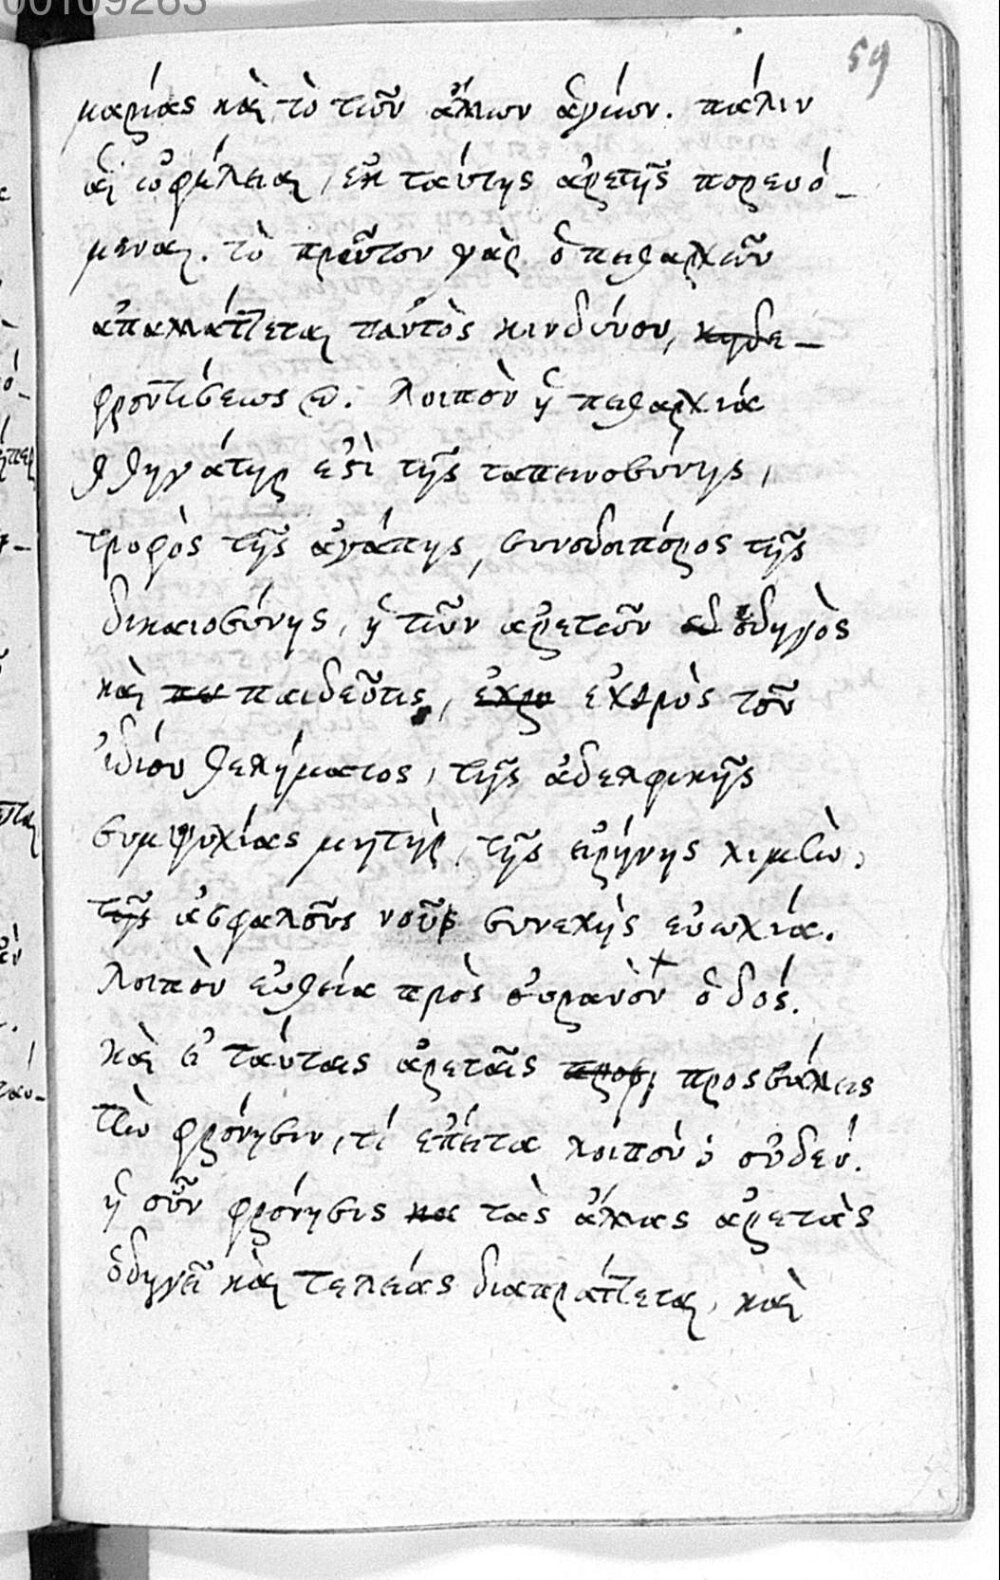 59
μαρίας καὶ τὸ τῶν ἄλλων ἁγίων. πάλιν
αἱ ὠφέλειαι, ἐκ ταύτης ἀρετῆς πορευό-
μεναι. τὸ πρῶτον γὰρ ὁ πειθαρχῶν
ἀπαλλάττεται παντὸς κινδύνου,
φροντίσεως. λοιπὸν ἡ πειθαρχία
θυγάτηρ ἐστὶ τῆς ταπεινοσύνης,
τροφὸς τῆς ἀγάπης, συνοδοιπόρος τῆς
δικαιοσύνης, ἡ τῶν ἀρετῶν ὁδηγὸς
καὶ παιδεῦτις, ἐχθρὸς τοῦ
ἰδίου θελήματος, τῆς ἀδελφικῆς
συμψυχίας μητὴρ, τῆς εἰρήνης λιμὴν,
τῆς ἀσφαλοῦς νοῦς συνεχὴς εὐωχία.
λοιπὸν εὐθεία πρὸς οὐρανὸν ὁδός.
καὶ ταύταις ἀρεταῖς προσβάλλεις
τὴν φρόνησιν, τί ἐπείτα λοιπόν; οὐδεν.
ἡ οὖν φρόνησις τὰς ἄλλας ἀρετὰς
ὁδηγεῖ καὶ τελείας διαπράττεται, καὶ